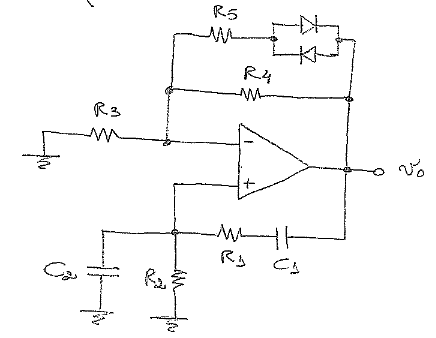 R5
R4
R3
-
+
v₀
R1
C1
C2
R2